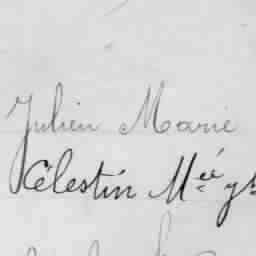 Julien Marie
Célestin M.ée